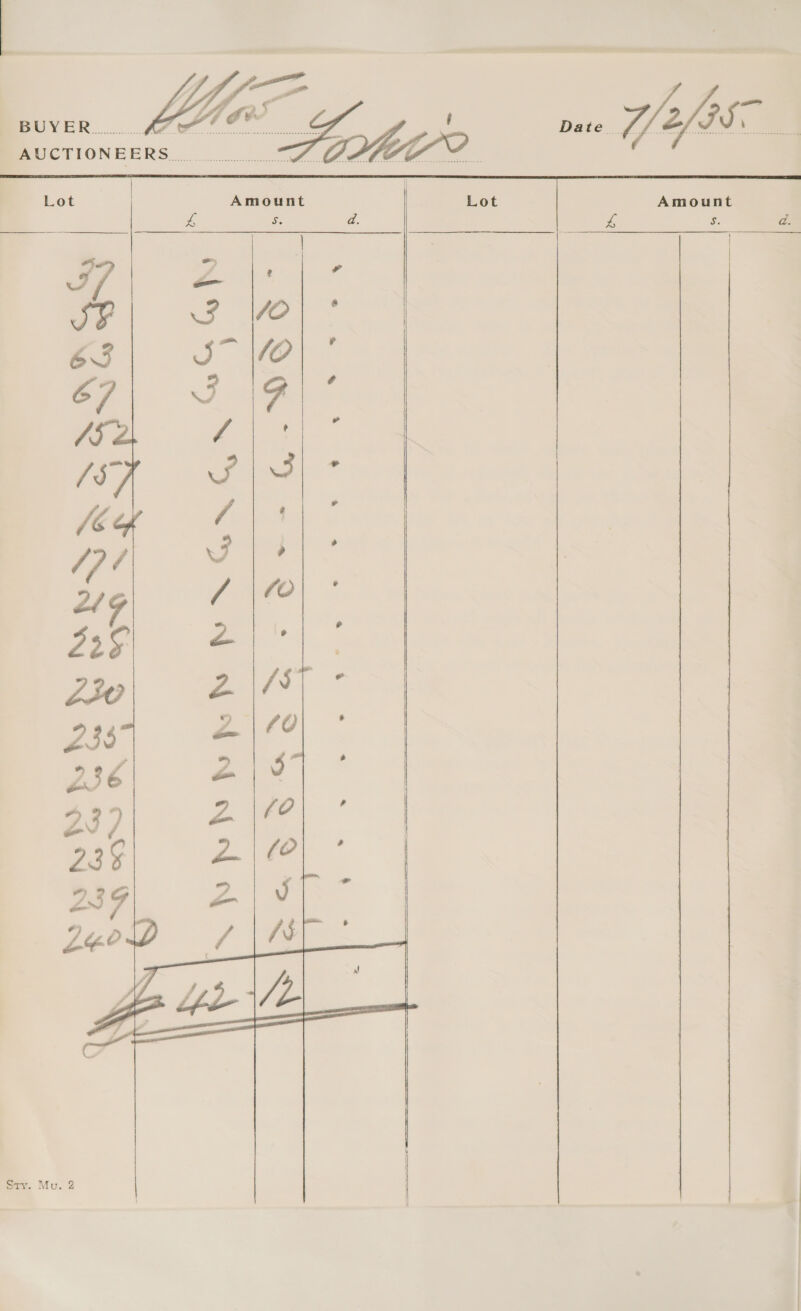 BUYER
AUCTIONEERS
Date 7/2/35
Lot Amount Lot Amount
£ s. d. £ s. d.
37 2 " "
58 3 10 "
63 5 10 "
67 3 9 "
152 1 " "
157 3 3 "
164 1 " "
171 3 " "
219 1 10 "
228 2 " "
230 2 15 "
235 2 10 "
236 2 5 "
237 2 10 "
238 2 10 "
239 2 5 "
240D 1 15 "
£ 42 12 "
STY. MU. 2